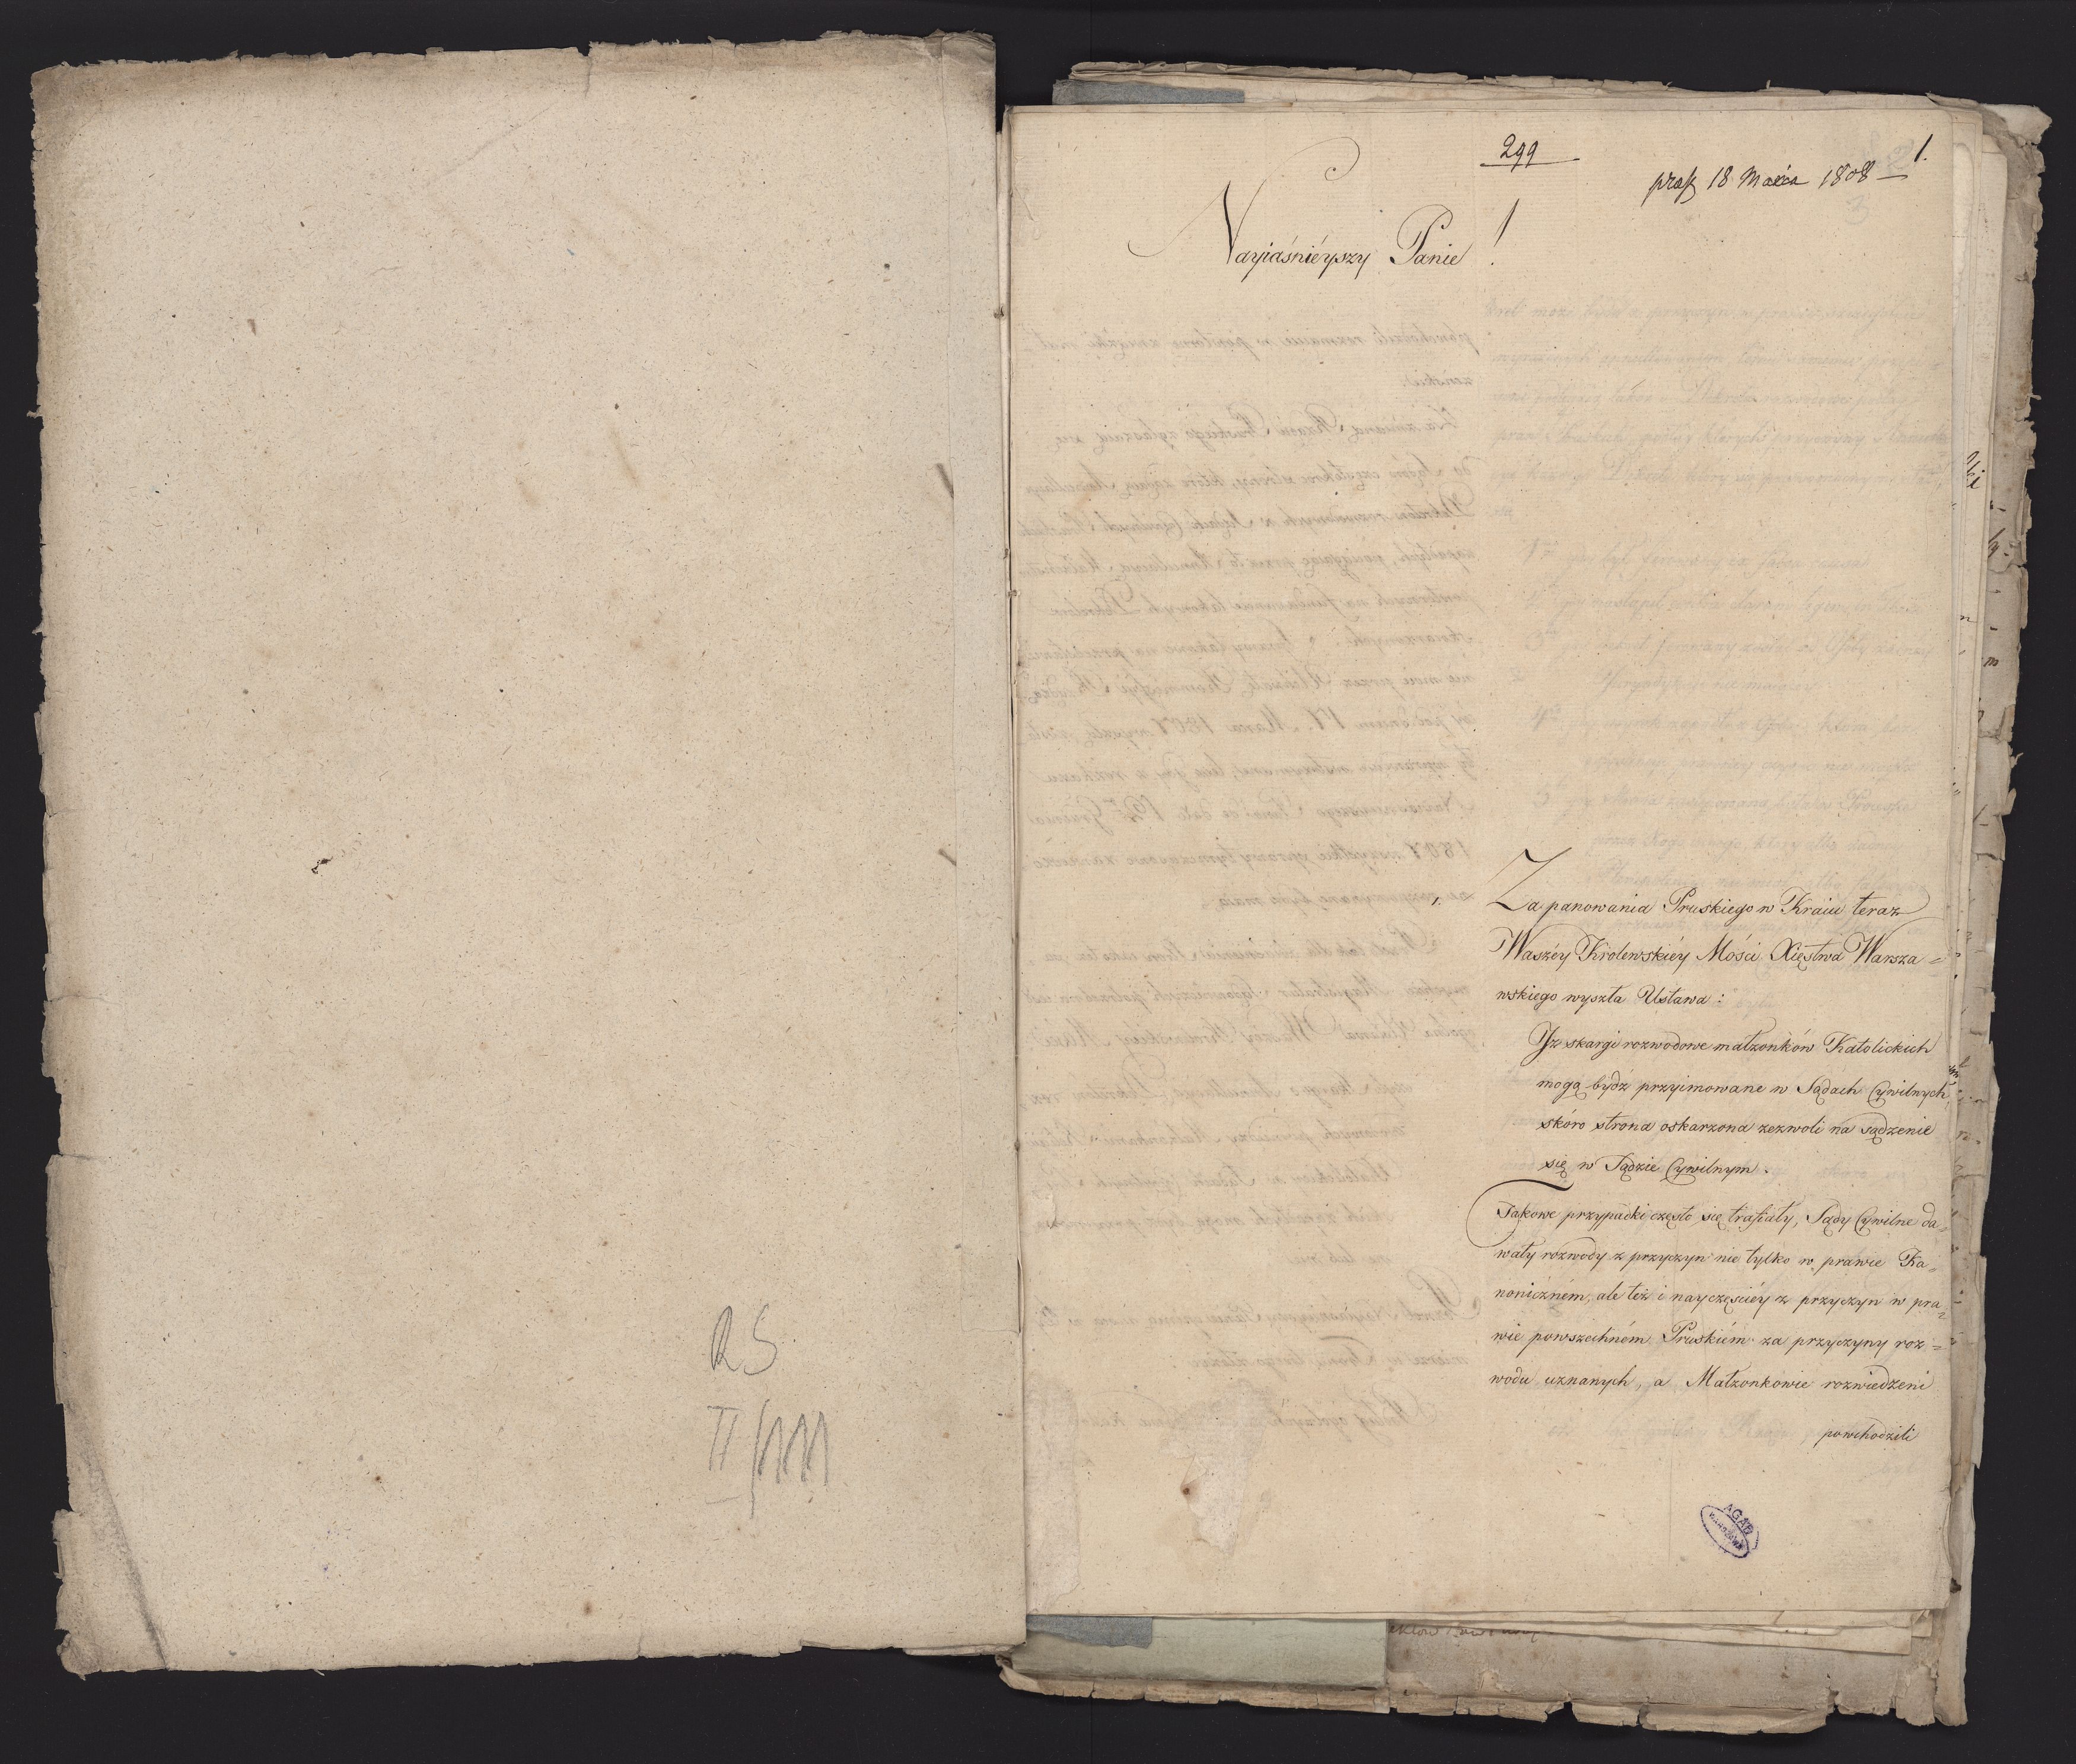 299
1.
18 Marca 1808
3
Nayiaśniéyszy Panie!
1.
Za panowania Pruskiego w Kraiu teraz
Waszéy Królewskiéy Mości Xięstwa Warsza=
wskiego wyszła Ustawa:
Iż skargi rozwodowe małżonków Katolickich
mogą bydź przyimowane w Sądach Cywilnych,
skóro strona oskarzona zezwoli na sądzenie
się w Sądzie Cywilnym.
Takowe przypadki często się trafiały, Sądy Cywilne da=
wały rozwody z przyczyn nie tylko w prawie Ka=
nonicżném, ale też i nayczęściéy z przyczyn w pra=
wie powszechném Pruskiém za przyczyny roz=
wodu uznanych, a Małżonkowie rozwiedzeni
powchodzili
RS
II/111
AGAD
WARSZAWA